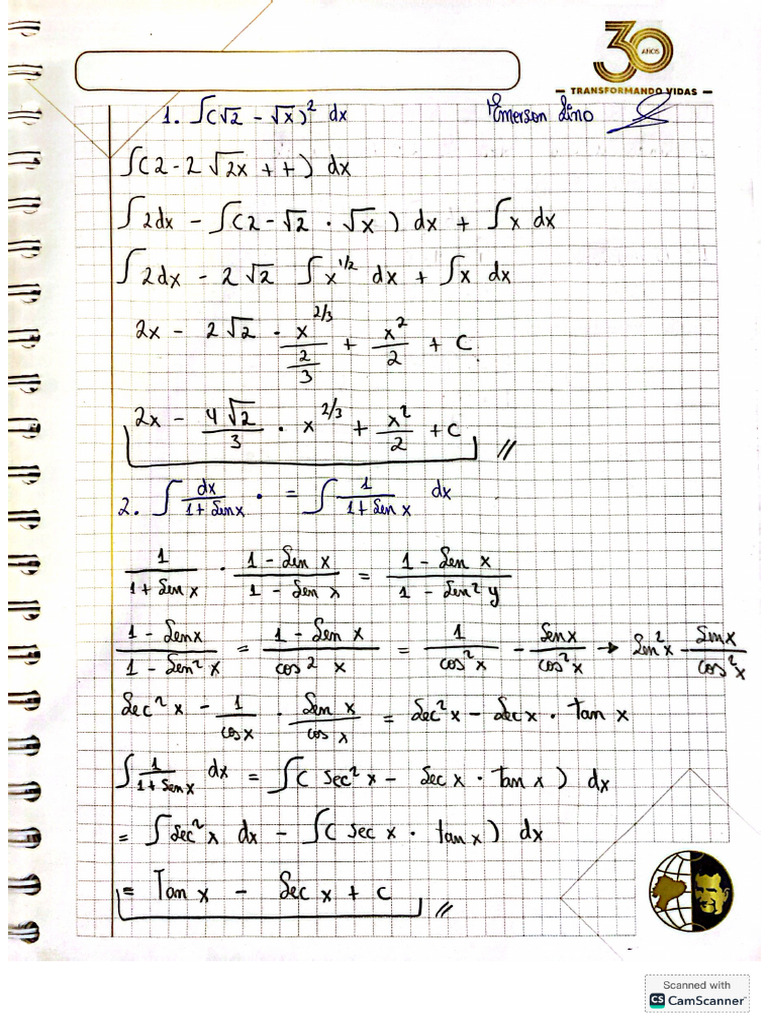 30 AÑOS
— TRANSFORMANDO VIDAS —
1. ∫(√2 - √x)² dx
∫(2 - 2√2x + +) dx
∫2dx - ∫(2 - √2 · √x) dx + ∫x dx
∫2dx - 2√2 ∫x^1/2 dx + ∫x dx
2x - 2√2 · x^2/3 / 2/3 + x²/2 + C
2x - 4√2/3 · x^2/3 + x²/2 + C //
2. ∫ dx/1+Senx · = ∫ 1/1+Sen x dx
1/1+Sen x · 1 - Sen x/1 - Sen x = 1 - Sen x/1 - Sen² y
1 - Senx/1 - Sen² x = 1 - Sen x/cos² x = 1/cos²x - Senx/cos²x → Sen²x - Sinx/cos²x
Sec² x - 1/cosx · Sen x/cos x = Sec²x - Secx · Tan x
∫ 1/1+Senx dx = ∫( sec²x - Sec x · Tan x) dx
= ∫Sec²x dx - ∫( sec x · tan x) dx
= Tan x - Sec x + c //
Scanned with
CS CamScanner